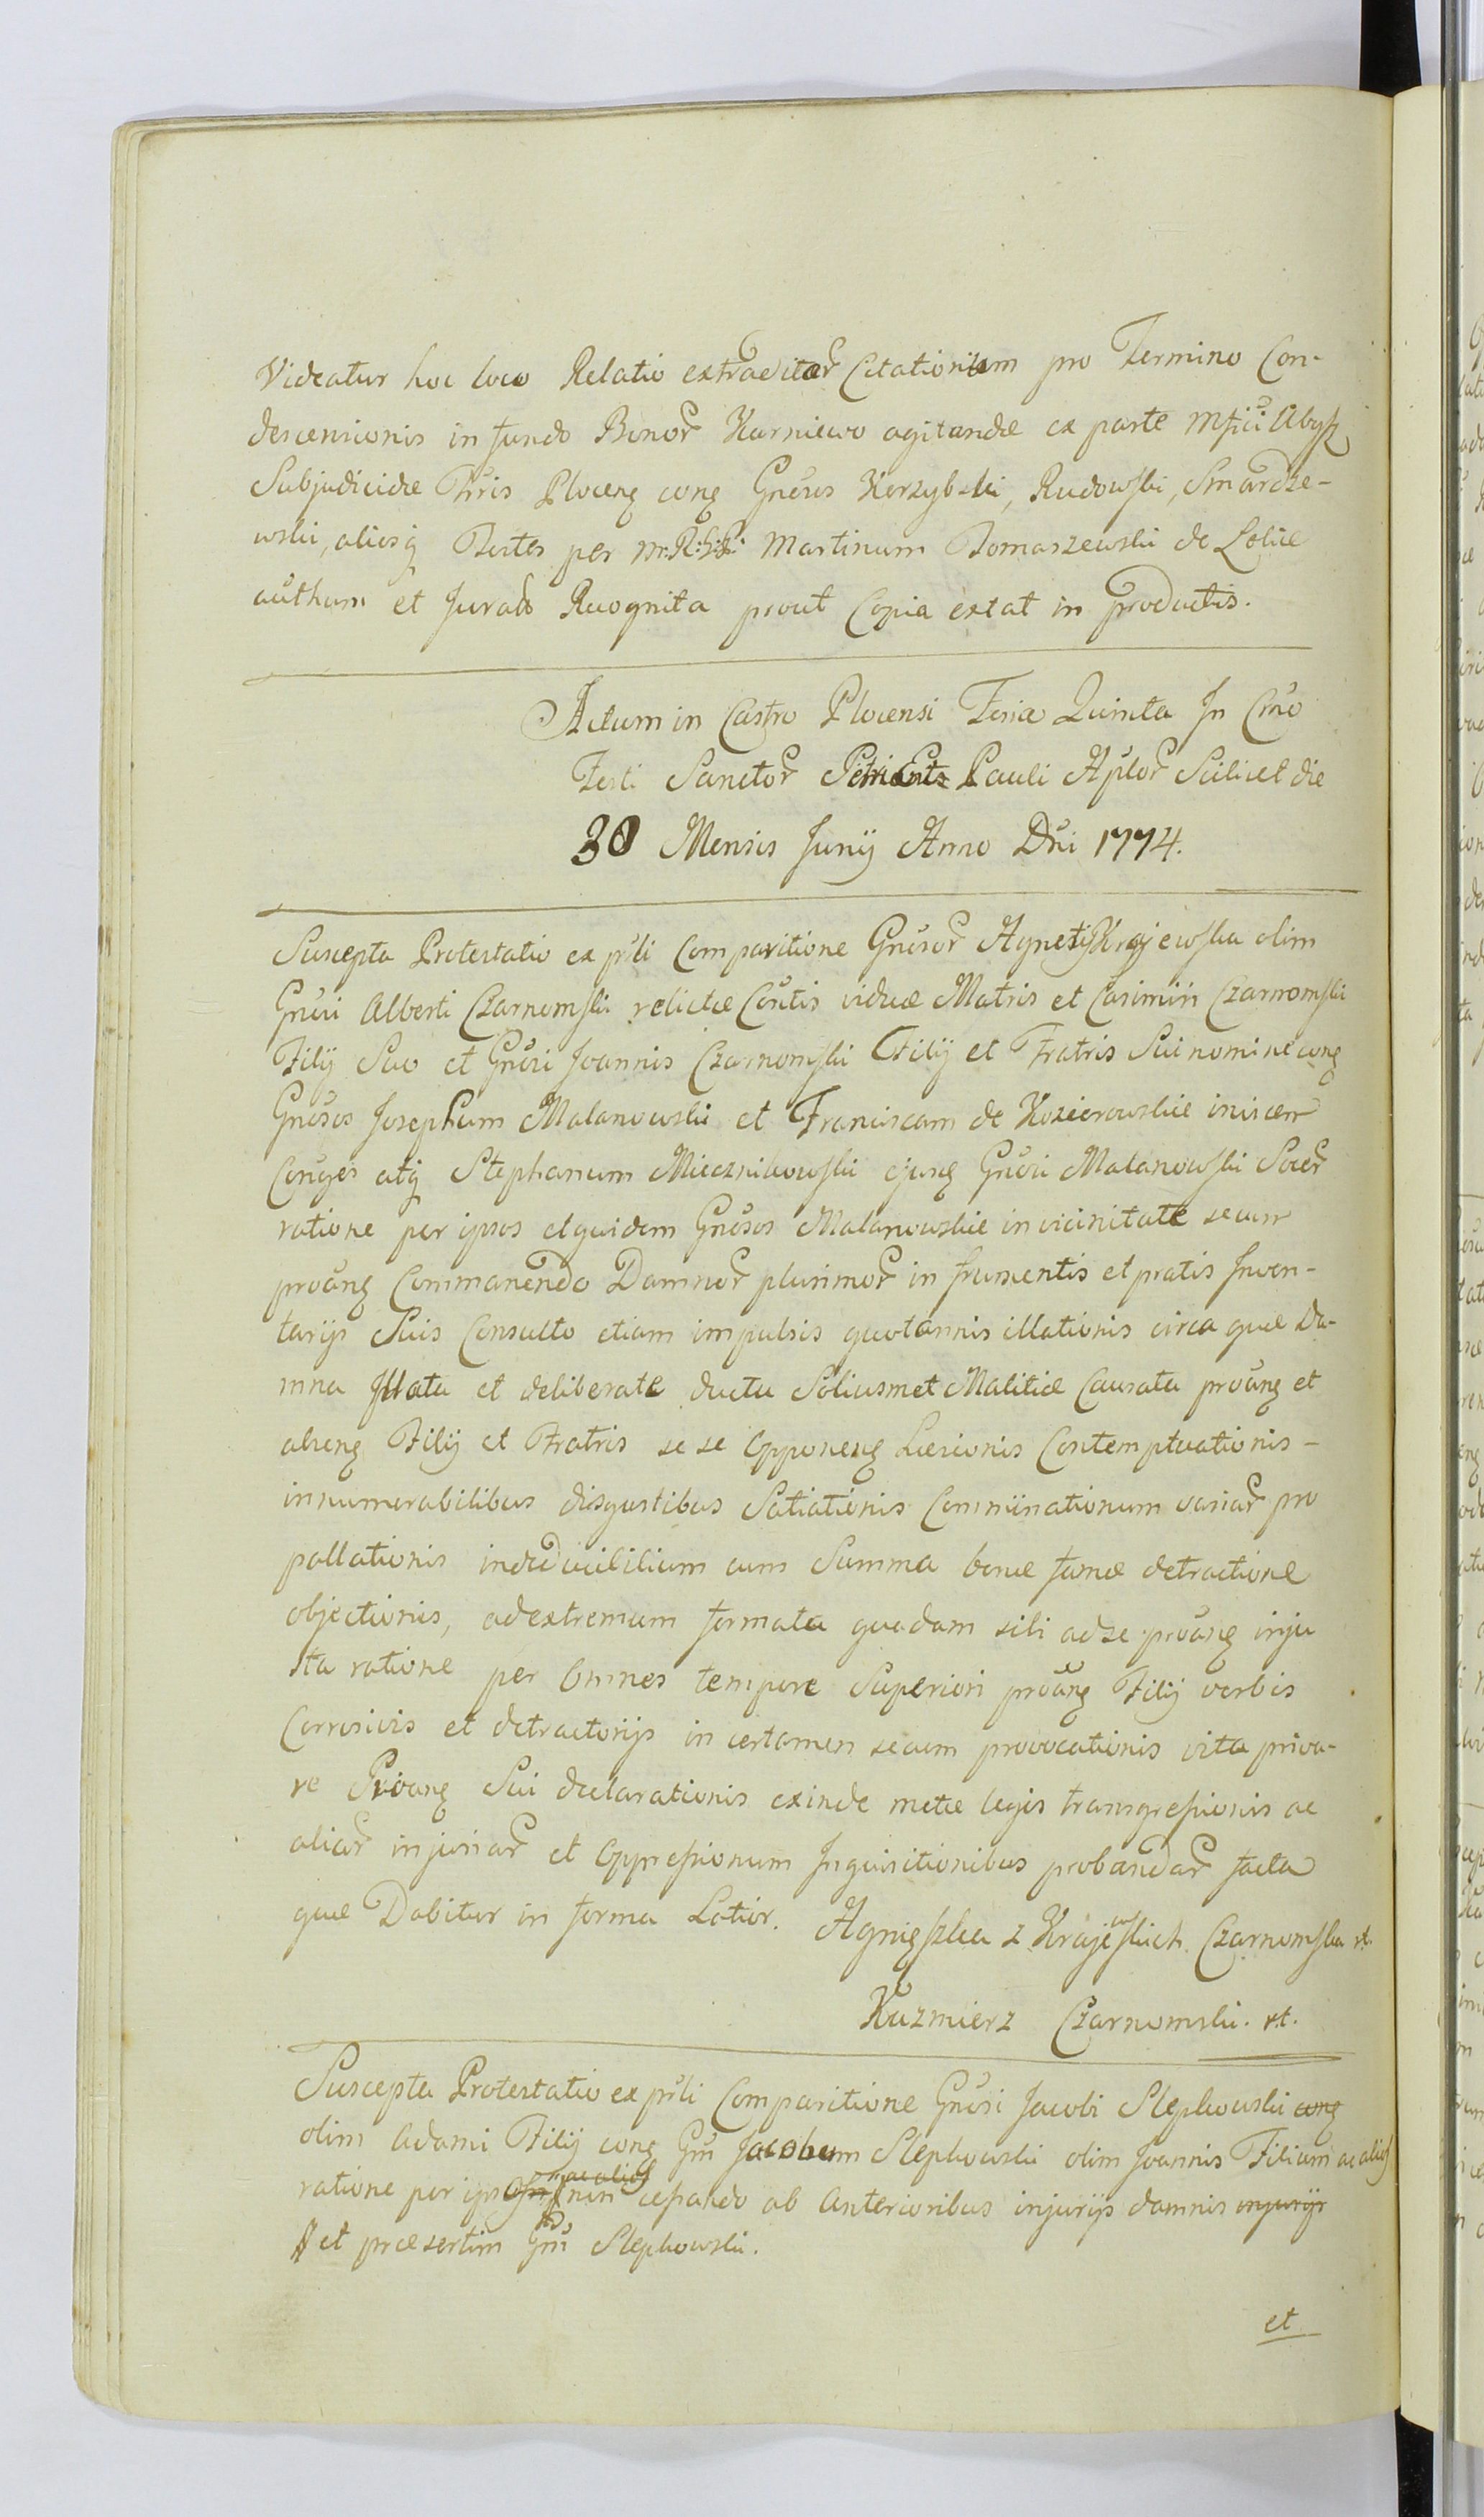 Videatur hoc loco Relatio extraditar Citationum pro Termino Con-
descensionis in fundo Bonor Karniewo agitandæ ex parte Mfici Abysz
Subjudicidæ Trris Plocens cons Gnesos Korzybski, Rudowski, Smardze-
wski, aliosq Testes per M:R:S:R: Martinum Tomaszewski de Lelice
authum et Jurato Recognita prout Copia extat in productis.
Actum in Castro Plocensi Feria Quinta In Crno
Festi Sanctor Petri Et Pauli Aplor Scilicet die
30 Mensis Junij Anno Dni 1774.
Suscepta Protestatio ex prli Comparitione Gnesor Agnetis Krajewska olim
Gnesi Alberti Czarnomski relictæ Contis viduæ Matris et Casimiri Czarnomski
Filij Suo et Gnesi Joannis Czarnomski Filij et Fratris Sui nomine cons
Gnesos Josephum Malanowski et Franciscam de Kozierowskie invicem
Conges atq Stephanum Miecznikowski ejusq Gnesi Malanowski Socer
ratione per ipsos et quidem Gnesos Malanowskie in vicinitate secum
proans Commanendo Damnor plurimor in frumentis et pratis Inven-
tarijs Suis Consulto etiam impulsis quotannis illationis circa quæ Da-
mna Illata et deliberate ductu Soliusmet Malitiæ Causata proans et
absens Filij et Fratris se se opponens Læsionis Contemptuationis-
innumerabilibus disgustibus Satiationis Comminationum variar pro
pallationis inded­ucibilium cum Summa bonæ famæ detractione
objectionis, ad extremum formata quadam sibi ad se proans inju
sta ratione per Omnes tempore Superiori proans Filij verbis
Corrosivis et detractorijs in certamen secum provocationis vita priva-
re Proans Sui declarationis exinde metæ legis transgressionis ac
aliar injuriar et Oppressionum Inquisitionibus probandar facta
quæ Dabitur in forma Latior. Agnieszka z Krajewskich Czarnomska rt.
Kazmierz Czarnomski. rt.
Suscepta Protestatio ex prli Comparitione Gnesi Jacobi Slepkowski cons
olim Adami Filij cons Gm Jacobum Slepkowski olim Joannis Filium ac alios
ratione per ipsos ac alios non cessando ab Anterioribus injurijs damnis injurijs
et præsertim Gm Slepkowski.
et